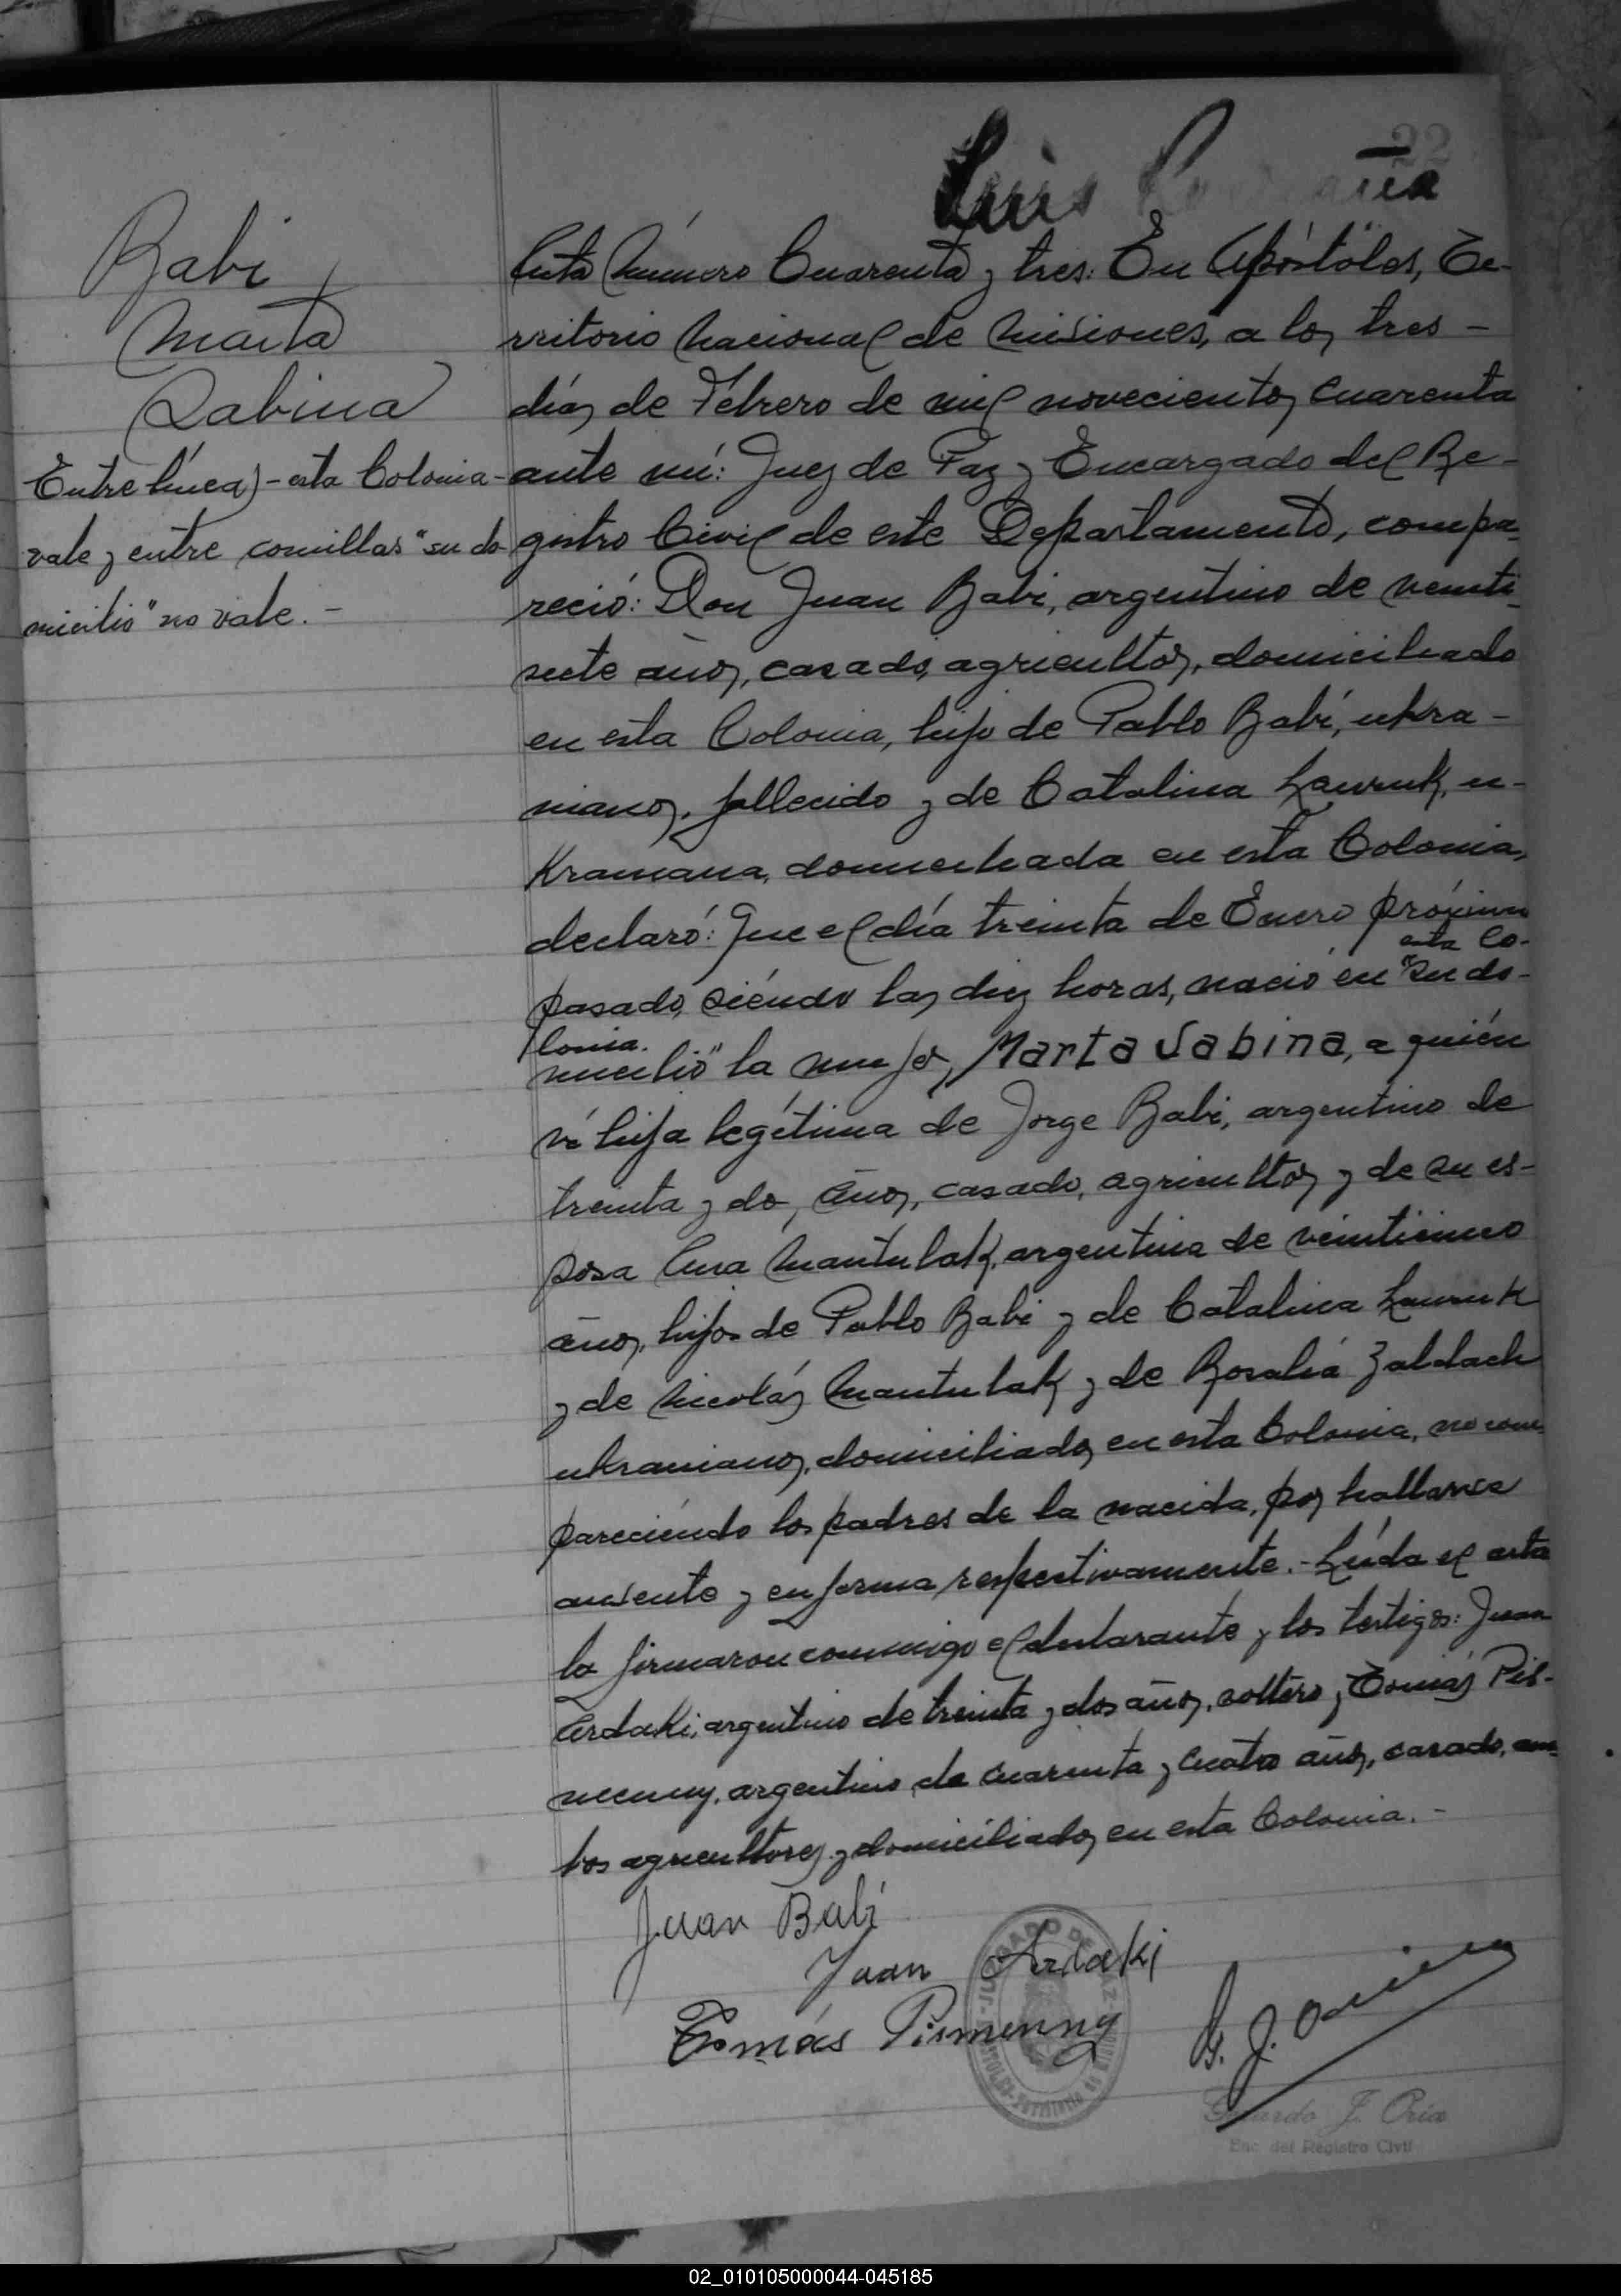 22
Luis
Babi
Marta
Sabina
Entre líneas - esta Colonia -
vale y entre comillas "su do
micilio" no vale. -
Acta Número Cuarenta y tres: En Apóstoles, Te-
rritorio Nacional de Misiones, a los tres -
días de Febrero de mil novecientos cuarenta
ante mí: Juez de Paz y Encargado del Re-
gistro Civil de este Departamento, compa-
reció: Don Juan Babi, argentino de veinti-
siete años, casado, agricultor, domiciliado
en esta Colonia, hijo de Pablo Babí, ukra-
niano, fallecido y de Catalina Lauruk, u-
kraniana, domiciliada en esta Colonia,
declaró: Que el día treinta de Enero próximo
esta Co-
pasado, siéndo las diez horas, nació en "su do-
lonia.
micilio" la mujer, Marta Sabina, a quién
ví hija legítima de Jorge Babi, argentino de
treinta y dos años, casado, agricultor y de su es-
posa Ana Mantulak, argentina de veinticinco
años, hijos de Pablo Babi y de Catalina Lauruk
y de Nicolás Mantulak y de Rosalia Zaldach
ukranianos, domiciliados en esta Colonia, no com-
pareciéndo los padres de la nacida, por hallarse
ausente y enferma respectivamente. - Leída el acta
la firmaron conmigo el declarante y los testigos: Juan
Ardaki, argentino de treinta y dos años, soltero y Tomás Pis-
menny, argentino de cuarenta y cuatro años, casado, am-
bos agricultores y domiciliados en esta Colonia. -
Juan Babi
Juan Ardaki
Tomás Pismenny
G. J. Oria
Gerardo J. Oria
Enc. del Registro Civil
02_010105000044-045185